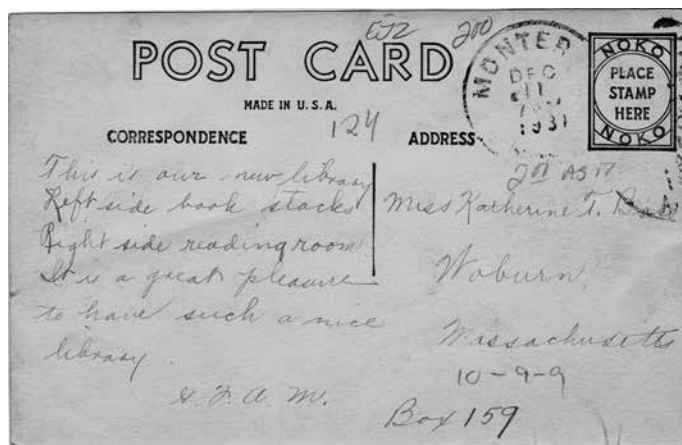 EJ2 200
POST CARD
MADE IN U.S.A.
124
CORRESPONDENCE
ADDRESS
MONTER
DEC
11
1931
NOKO
PLACE
STAMP
HERE
NOKO
This is our new library
Left side book stacks
Right side reading room
It is a great pleasure
to have such a nice
library.
Miss Katherine T.
Woburn,
Massachusetts
10-9-9
Box 159